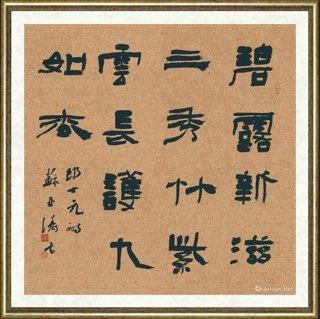 碧露新滋
三秀艸紫
雲長護九
如春
郎士元詩
蘇士澍書
Artron.Net